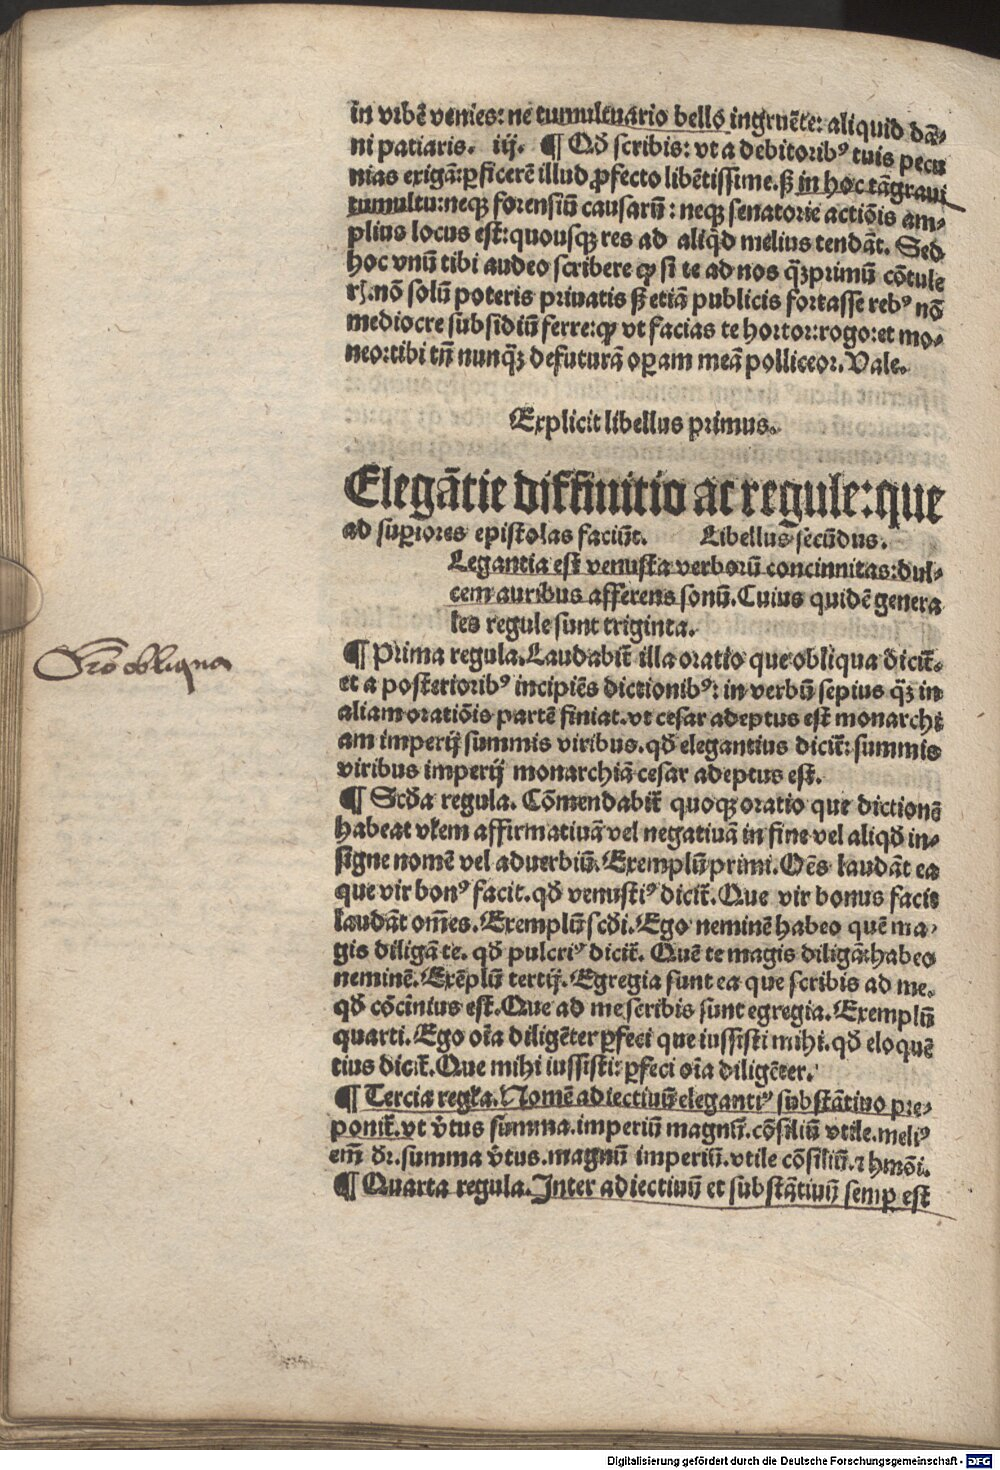 in vrbē venies: ne tumultuario bello ingruēte: aliquid dā-
ni patiaris. iij. ¶ Qđ scribis: vt a debitoribꝰ tuis pecu
nias exigā: ꝑficerē illud ꝓfecto libētissime. sꝫ in hoc tā graui
tumultu: neqꝫ forensiū causarū: neqꝫ senatorie actiōis am-
plius locus est: quousqꝫ res ad aliqđ melius tendāt. Sed
hoc vnū tibi audeo scribere ꝙ si te ad nos q̄ꝫprimū cōtule
rꝭ. nō solū poteris priuatis sꝫ etiā publicis fortasse rebꝰ nō
mediocre subsidiū ferre: ꝙ vt facias te hortor: rogo: et mo-
neo: tibi tn̄ nunq̄ꝫ defuturā oꝑam meā polliceor. Vale.
Explicit libellus primus.
Elegātie diffinitio ac regule: que
ad suꝑiores epistolas faciūt. Libellus secūdus.
Legantia est venusta verborū concinnitas: dul-
cem auribus afferens sonū. Cuius quidē genera
les regule sunt triginta.
¶ Prima regula. Laudabit̄ illa oratio que obliqua dicit̄.
et a posterioribꝰ incipiēs dictionibꝰ: in verbū sepius q̄ꝫ in
aliam oratiōis partē finiat. vt cesar adeptus est monarchi
am imperij summis viribus. qđ elegantius dicit̄: summis
viribus imperij monarchiā cesar adeptus est.
¶ Scđa regula. Cōmendabit̄ quoqꝫ oratio que dictionē
habeat vl̄em affirmatiuā vel negatiuā in fine vel aliqđ in-
signe nomē vel aduerbiū. Exemplū primi. Oēs laudāt ea
que vir bonꝰ facit. qđ venustiꝰ dicit̄. Que vir bonus facit
laudāt om̄es. Exemplū scđi. Ego neminē habeo quē ma-
gis diligā te. qđ pulcriꝰ dicit̄. Quē te magis diligā: habeo
neminē. Exēplū tertij. Egregia sunt ea que scribis ad me.
qđ cōcinius est. Que ad me scribis sunt egregia. Exemplū
quarti. Ego oīa diligēter ꝑfeci que iussisti mihi. qđ eloquē
tius dicit̄. Que mihi iussisti: ꝑfeci oīa diligēter.
¶ Tercia regl̄a. Nomē adiectiuū elegantiꝰ substātiuo pre-
ponit̄. vt v̄tus summa. imperiū magnū. cōsiliū vtile. meliꝰ
em̄ dr̄. summa v̄tus. magnū imperiū. vtile cōsiliū. ⁊ hmōi.
¶ Quarta regula. Inter adiectiuū et substātiuū semꝑ est
obliqua
Digitalisierung gefördert durch die Deutsche Forschungsgemeinschaft - DFG